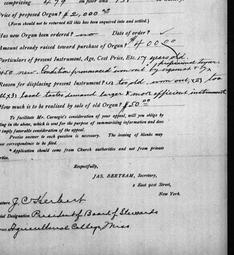 comprising 479
Price of proposed Organ? $2,000.00
(Form should not be returned till this has been inquired into and settled.)
Has new Organ been ordered? no Date of order?
Amount already raised toward purchase of Organ? $400.00
Particulars of present Instrument, Age, Cost Price, Etc. 17 years old
$50 new. Condition pronounced "worn out" by
Reason for displacing present Instrument? too old, worn out,
local tastes demand larger & more efficient instrument
How much is to be realised by sale of old Organ? $50.00
To facilitate Mr. Carnegie's consideration for your appeal, will you oblige by
ing in the above, which is sent for the purpose of summarising information and does
imply favorable consideration of the appeal.
Precise answer to each question is necessary. The leaving of blanks may
correspondence to be required.
Application should come from Church authorities and not from private
Respectfully,
JAS. BERTRAM, Secretary,
2 East 91st Street,
New York.
J. C. Herbert
cial Designation President of Board of Stewards
Agricultural College, Miss